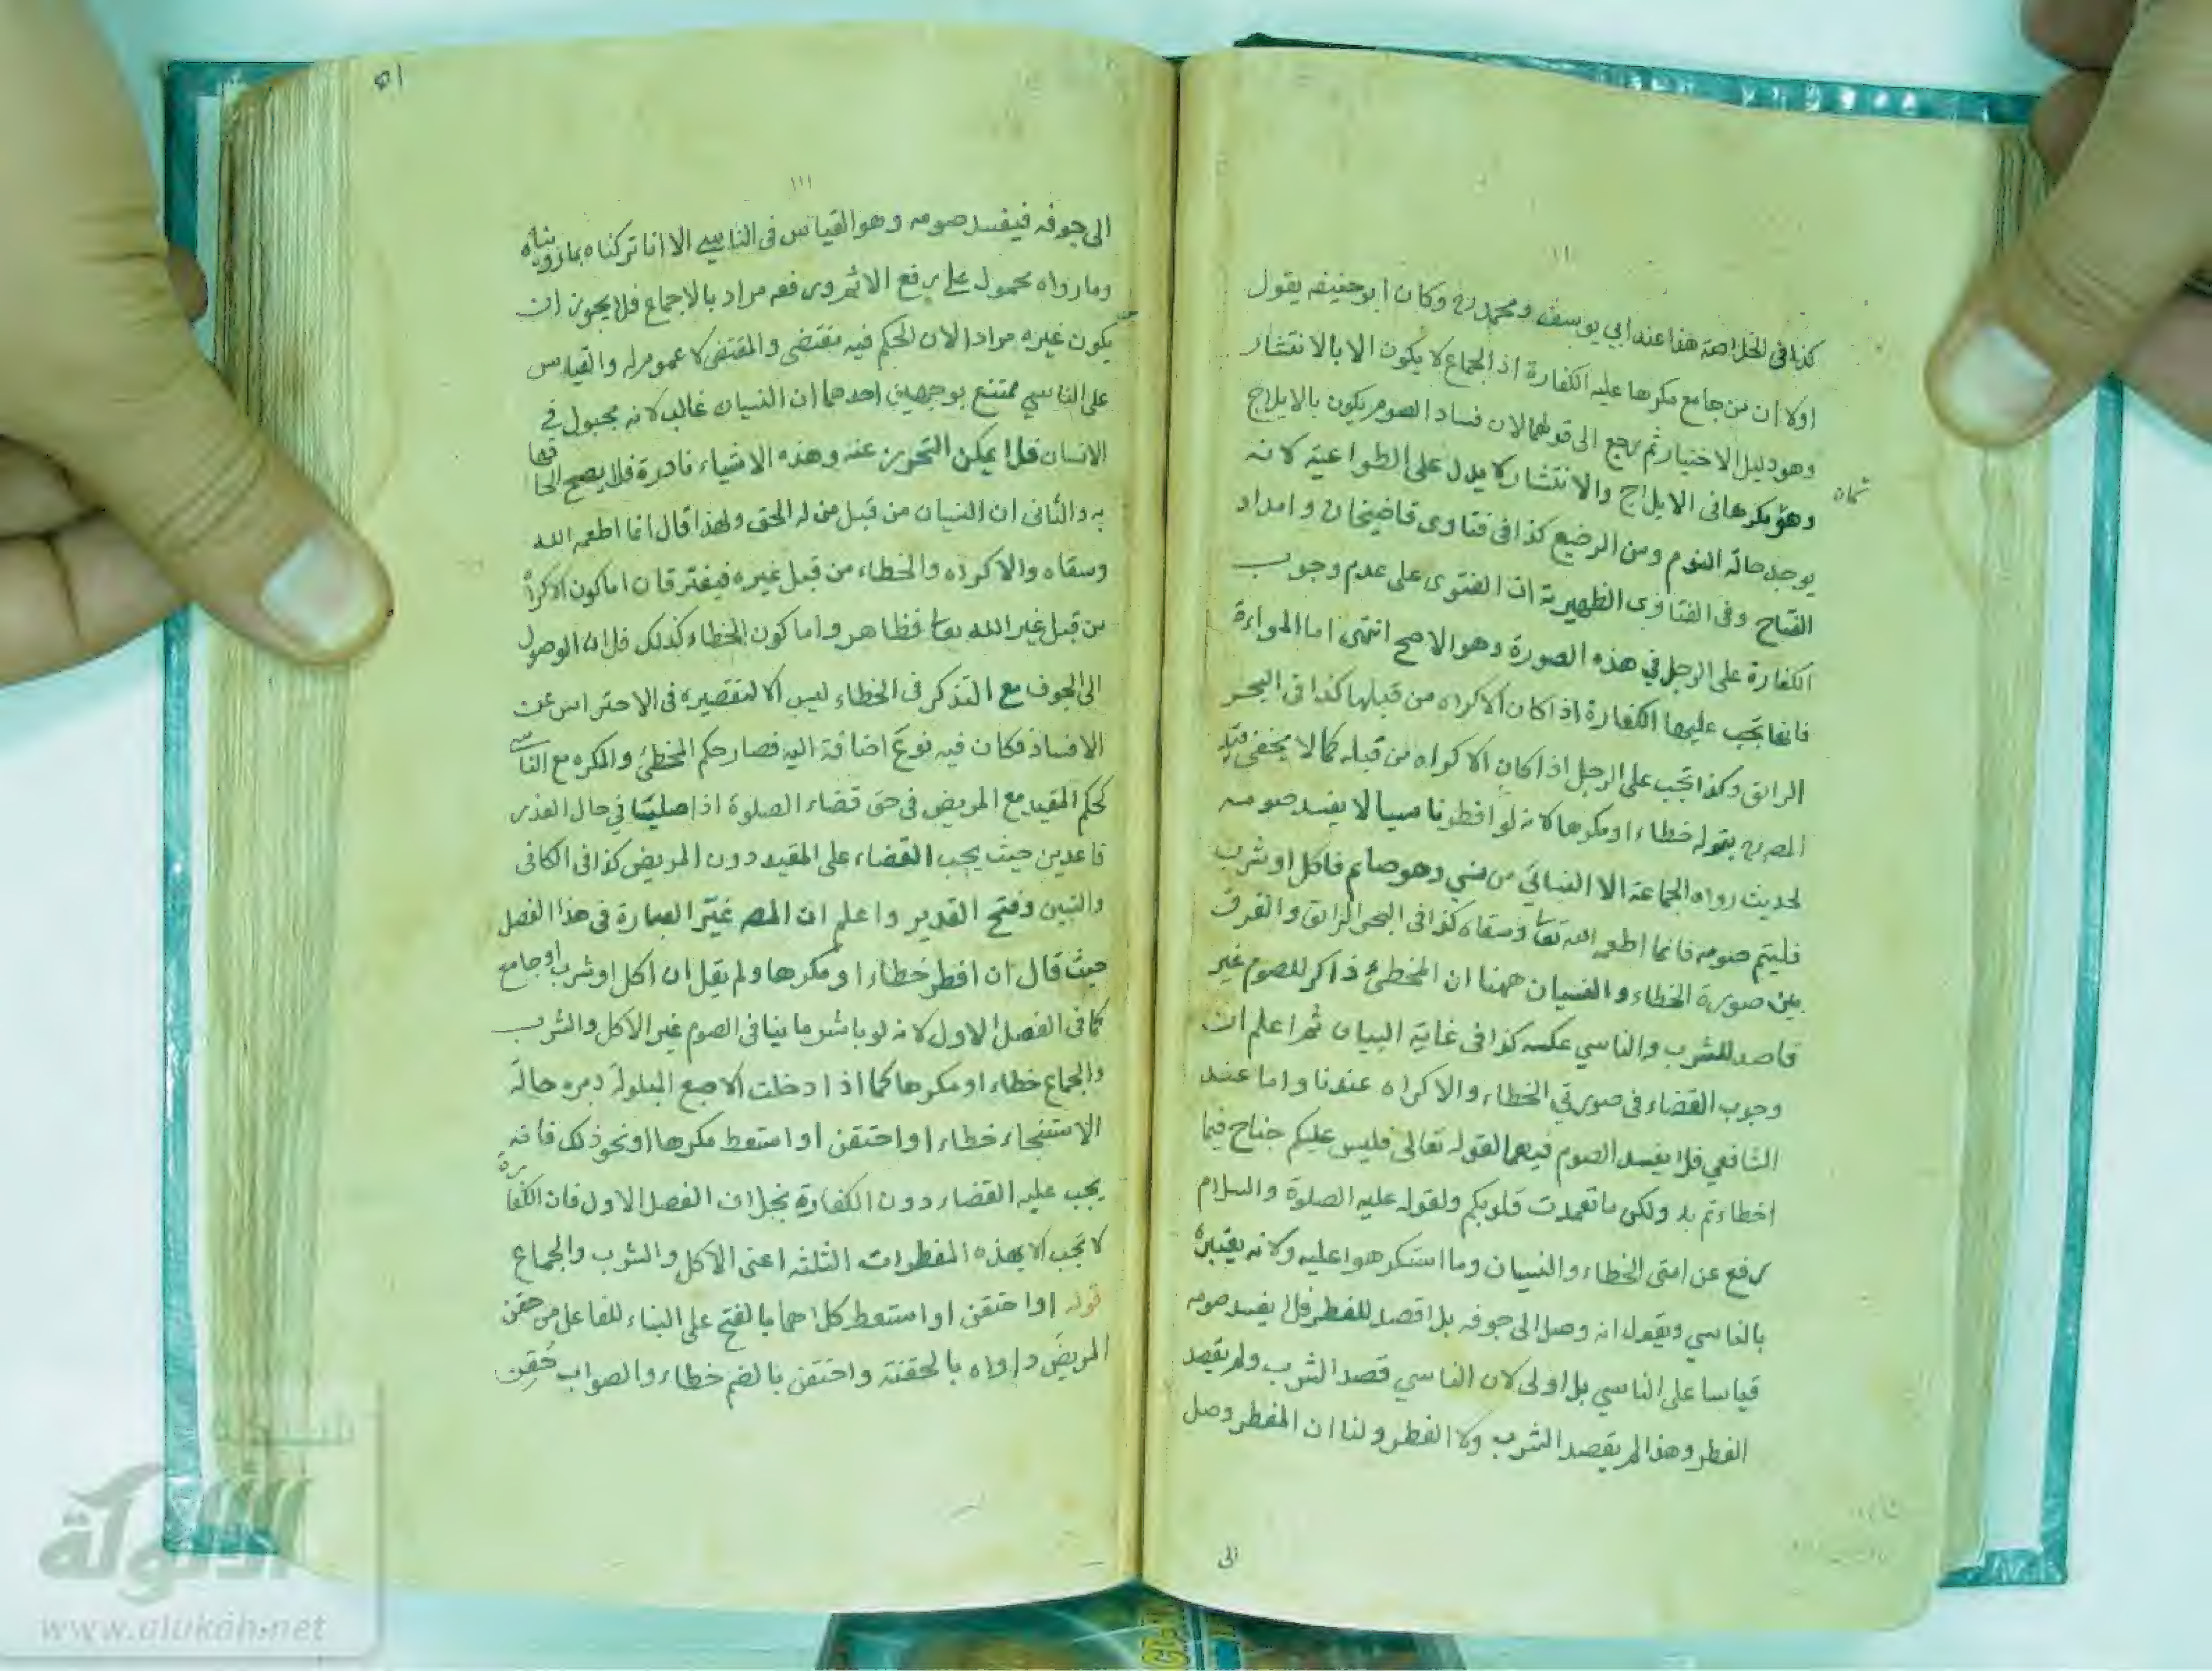 كذا فى الخلاصة هذا عند ابي يوسف ومحمد رح وكان ابو حنيفه يقول
اولا ان من جامع مكرها عليه الكفارة اذ الجماع لا يكون الا بالانتشار
وهو دليل الاختيار ثم رجع الى قولهما لان فساد الصوم يكون بالايلاج
وهو مكره فى الايلاج والانتشار لا يدل على الطواعية لانه
يوجد حالة النوم ومن الرضيع كذا فى فتاوى قاضيخان وامداد
الفتاح وفى الفتاوى الظهيرية ان الفتوى على عدم وجوب
الكفارة على الرجل في هذه الصورة وهو الاصح انتهى اما المراءة
فانها تجب عليها الكفارة اذا كان الاكراه من قبلها كذا فى البحر
الرائق وكذا تجب على الرجل اذا كان الاكراه من قبله كما لا يخفى قيد
المص رح بقوله خطاء او مكرها لانه لو افطر ناسيا لا يفسد صومه
لحديث رواه الجماعة الا النسائي من نسي وهو صائم فاكل او شرب
فليتم صومه فانما اطعمه الله تعا وسقاه كذا فى البحر الرائق والفرق
بين صورة الخطاء والنسيان ههنا ان المخطئ ذاكر للصوم غير
قاصد للشرب والناسي عكسه كذا فى غاية البيان ثم اعلم ان
وجوب القضاء فى صورتي الخطاء والاكراه عندنا واما عند
الشافعي فلا يفسد الصوم فيهما لقوله تعالى فليس عليكم جناح فيما
اخطاءتم به ولكن ما تعمدت قلوبكم ولقوله عليه الصلوة والسلام
رفع عن امتى الخطاء والنسيان وما استكرهوا عليه ولانه يعتبره
بالناسي ويقول انه وصل الى جوفه بلا قصد للفطر فلا يفسد صومه
قياسا على الناسي بل اولى لان الناسي قصد الشرب ولم يقصد
الفطر وهذا لم يقصد الشرب ولا الفطر ولنا ان المفطر وصل
الى
١١١
الى جوفه فيفسد صومه وهو القياس فى الناسي الا انا تركناه بما رويناه
وما رواه محمول على رفع الاثم ورفعه مراد بالاجماع فلا يجوز ان
يكون غيره مرادا لان الحكم فيه مقتضى والمقتضى لا عموم له والقياس
على الناسي ممتنع بوجهين احدهما ان النسيان غالب لانه مجبول في
الانسان فلا يمكن التحرز عنه وهذه الاشياء نادرة فلا يصح الحاقها
به والثانى ان النسيان من قبل من له الحق ولهذا قال انما اطعمه الله
وسقاه والاكراه والخطاء من قبل غيره فيفترقان اما كون الاكراه
من قبل غير الله تعا فظاهر واما كون الخطاء كذلك فلان الوصول
الى الجوف مع التذكر فى الخطاء ليس الا لتقصيره فى الاحتراس عن
الافساد فكان فيه نوع اضافة اليه فصار حكم المخطئ والمكره مع الناسي
كحكم المقيد مع المريض فى حق قضاء الصلوة اذا صليتا في حال العذر
قاعدين حيث يجب القضاء على المقيد دون المريض كذا فى الكافى
والتبيين وفتح القدير واعلم ان المص غيّر العبارة فى هذا الفصل
حيث قال ان افطر خطاء او مكرها ولم يقل ان اكل او شرب او جامع
كما فى الفصل الاول لانه لو باشر ما ينافى الصوم غير الاكل والشرب
والجماع خطاء او مكرها كما اذا دخلت الاصبع المبلولة دبره حالة
الاستنجاء خطاء او احتقن او استعط مكرها او نحو ذلك فانه
يجب عليه القضاء دون الكفارة بخلاف الفصل الاول فان الكفارة
لا تجب الا بهذه المفطرات الثلثة اعنى الاكل والشرب والجماع
قوله او احتقن او استعط كلاهما بالفتح على البناء للفاعل من حقن
المريض داواه بالحقنة واحتقن بالضم خطاء والصواب حُقِن
شبكة
الألوكة
www.alukah.net